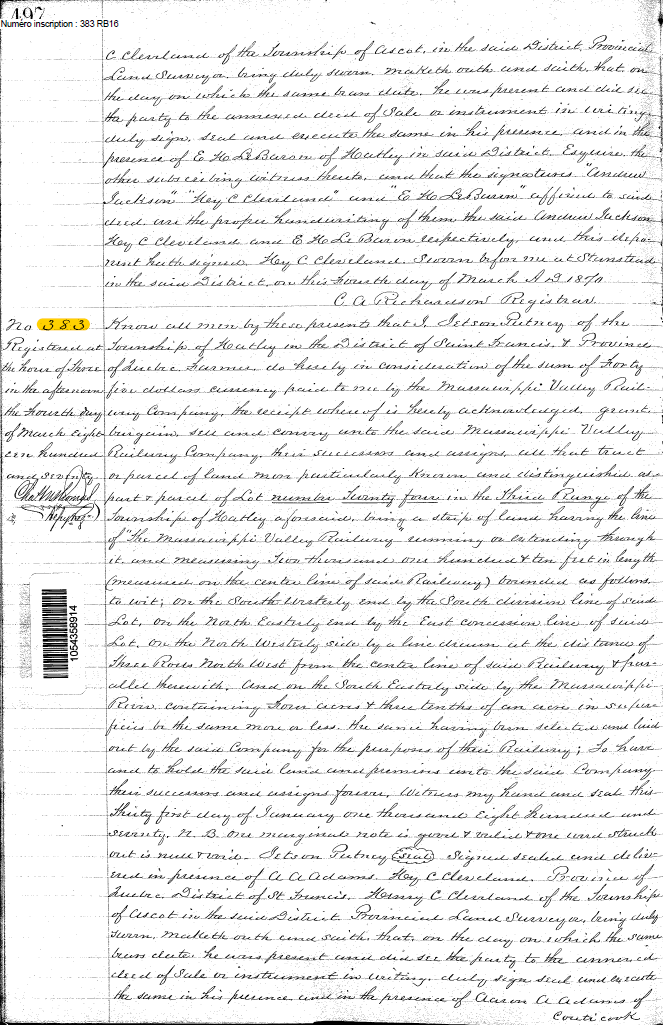 497
Numéro inscription : 383 RB16
C Cleveland of the Township of Ascot, in the said District, Provincial
Land Surveyor, being duly sworn, maketh oath and saith, that, on
the day on which the same bears date, he was present and did see
the party to the annexed deed of Sale or instrument in writing,
duly sign, seal and execute the same in his presence, and in the
presence of E H LeBaron of Hatley in said District, Esquire, the
other subscribing witness thereto, and that the signatures "Andrew
Jackson" "Hey C Cleveland" and "E H LeBaron" affixed to said
deed, are the proper handwriting of them the said Andrew Jackson
Hey C Cleveland and E H Le Baron respectively, and this depo-
nent hath signed. Hey C Cleveland. Sworn before me at Stanstead
in the said District, on this Fourth day of March A D 1870.
C A Richardson Registrar
No 383
Registered at
the hour of three
in the afternoon
the Fourth day
of March Eight
een hundred
and seventy
Know all men by these presents that I, Jetson Putney of the
Township of Hatley in the District of Saint Francis, & Province
of Quebec Farmer, do hereby in consideration of the sum of Forty
five dollars currency paid to me by the Massawippi Valley Rail-
way Company, the receipt whereof is hereby acknowledged, grant,
bargain, sell and convey unto the said Massawippi Valley
Railway Company, their successors and assigns, all that tract
or parcel of land more particularly known and distinguished as
part & parcel of Lot number Twenty four in the Third Range of the
Township of Hatley aforesaid, being a strip of land having the line
of "The Massawippi Valley Railway" running or extending through
it, and measuring Two thousand one hundred & ten feet in length
(measured on the center line of said Railway) bounded as follows,
to wit; on the South Westerly end by the South division line of said
Lot, on the North Easterly end by the East concession line of said
Lot, on the North Westerly side by a line drawn at the distance of
Three Rods North West from the center line of said Railway & par-
allel therewith, And on the South Easterly side by the Massawippi
River, containing Four acres & three tenths of an acre in super-
ficies be the same more or less, the same having been selected and laid
out by the said Company for the purposes of their Railway; To have
and to hold the said land and premises unto the said Company
their successors and assigns forever, Witness my hand and seal this
Thirty first day of January one thousand Eight hundred and
seventy. N. B. One marginal note is good & valid & one word struck
out is null & void. Jetson Putney (seal) Signed sealed and deliv-
ered in presence of A A Adams. Hey C Cleveland. Province of
Quebec, District of St Francis. Henry C. Cleveland of the Township
of Ascot in the said District Provincial Land Surveyor, being duly
sworn, maketh oath and saith, that, on the day on which the same
bears date, he was present and did see the party to the annexed
deed of Sale or instrument in writing, duly sign seal and execute
the same in his presence and in the presence of Aaron A Adams of
Coaticook
1054358914